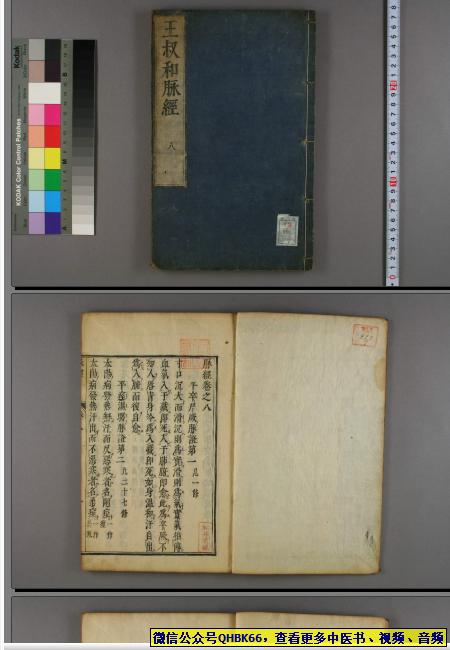 Kodak
KODAK Color Control Patches
王叔和脉經
八
脉經卷之八
平卒尸厥脉證第一 凡一條
寸口沉大而滑沉則爲實滑則爲氣實氣相搏
血氣入于藏即死入于腑即愈此爲卒厥不
知人唇青身冷爲入藏即死如身溫和汗自出
爲入腑而復自愈
平痓濕暍脉證第二 凡二十七條
太陽病發熱無汗而反惡寒者名剛痓 一作
太陽病發熱汗出而不惡寒者名柔痓 一作
微信公众号QHBK66，查看更多中医书、视频、音频